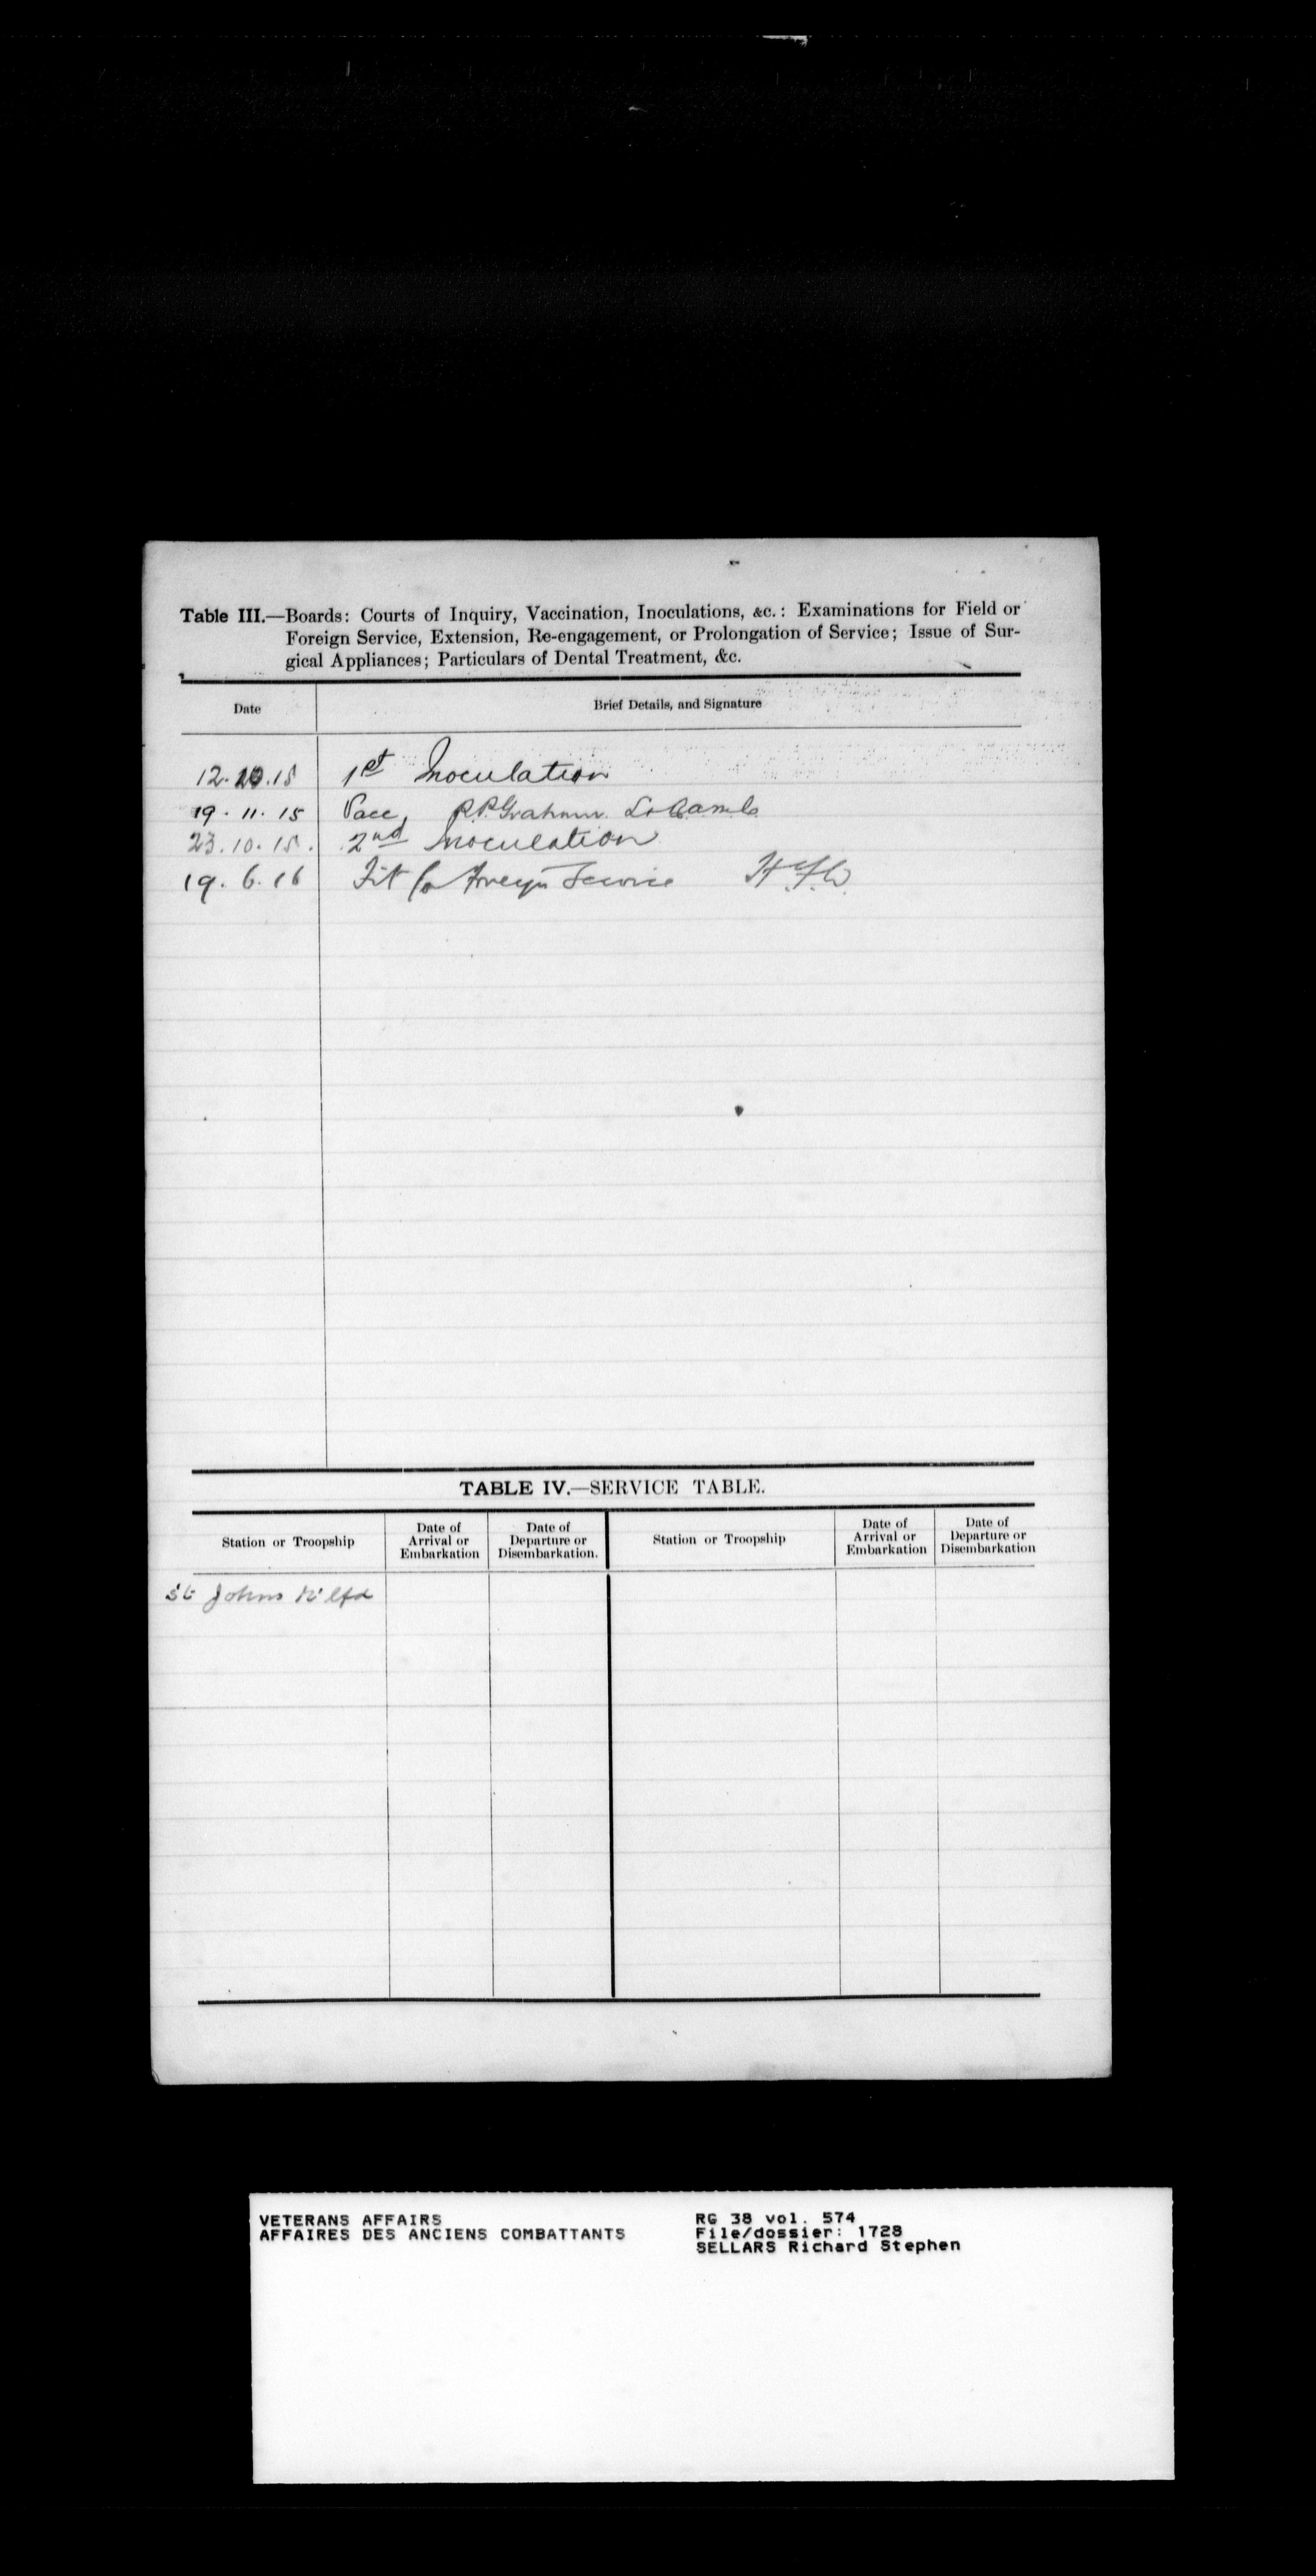 Table III.—Boards: Courts of Inquiry, Vaccination, Inoculations, &c.: Examinations for Field or
Foreign Service, Extension, Re-engagement, or Prolongation of Service; Issue of Sur-
gical Appliances; Particulars of Dental Treatment, &c.
Date Brief Details, and Signature
12.10.15 1st Inoculation
19.11.15 Vacc, R.P. Graham
23.10.15. 2nd Inoculation
19.6.16 Fit for Foreign Service
TABLE IV.—SERVICE TABLE.
Station or Troopship Date of Arrival or Embarkation Date of Departure or Disembarkation. Station or Troopship Date of Arrival or Embarkation Date of Departure or Disembarkation
St Johns N'lfd
VETERANS AFFAIRS RG 38 vol. 574
AFFAIRES DES ANCIENS COMBATTANTS File/dossier: 1728
SELLARS Richard Stephen